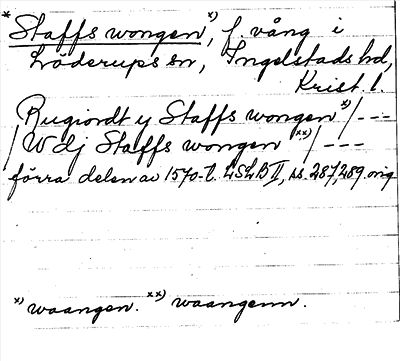 * Staffs wongen x), f. vång i
Löderups sn, Ingelstads hd,
Krist. l.
Rugiordt y Staffs wongen x) / ---
/ W dj Staffs wongen xx) / ---
förra delen av 1570-t. LSLB II, ss. 287, 289. orig
x) waangen. xx) waangenn.